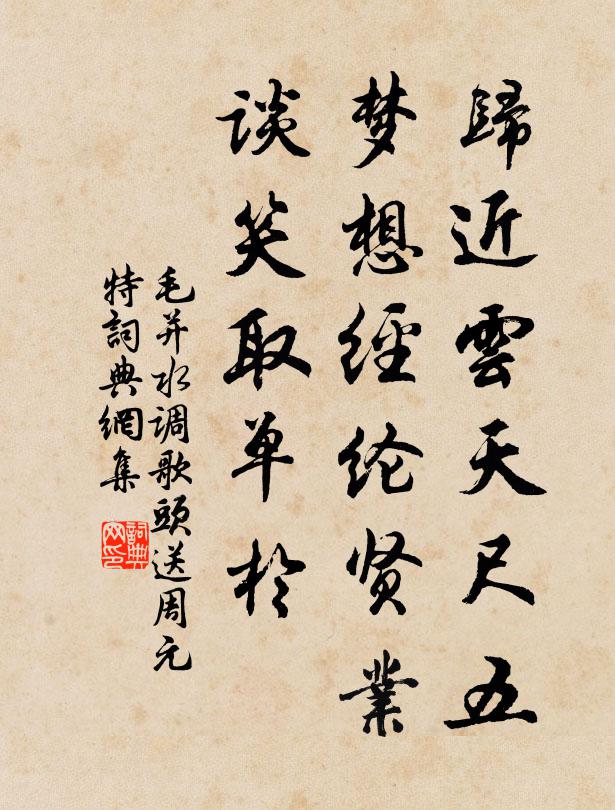 歸近雲天尺五
梦想經纶贤業
谈笑取单於
毛并水调歌頭送周元
特詞典網集
詞典网印